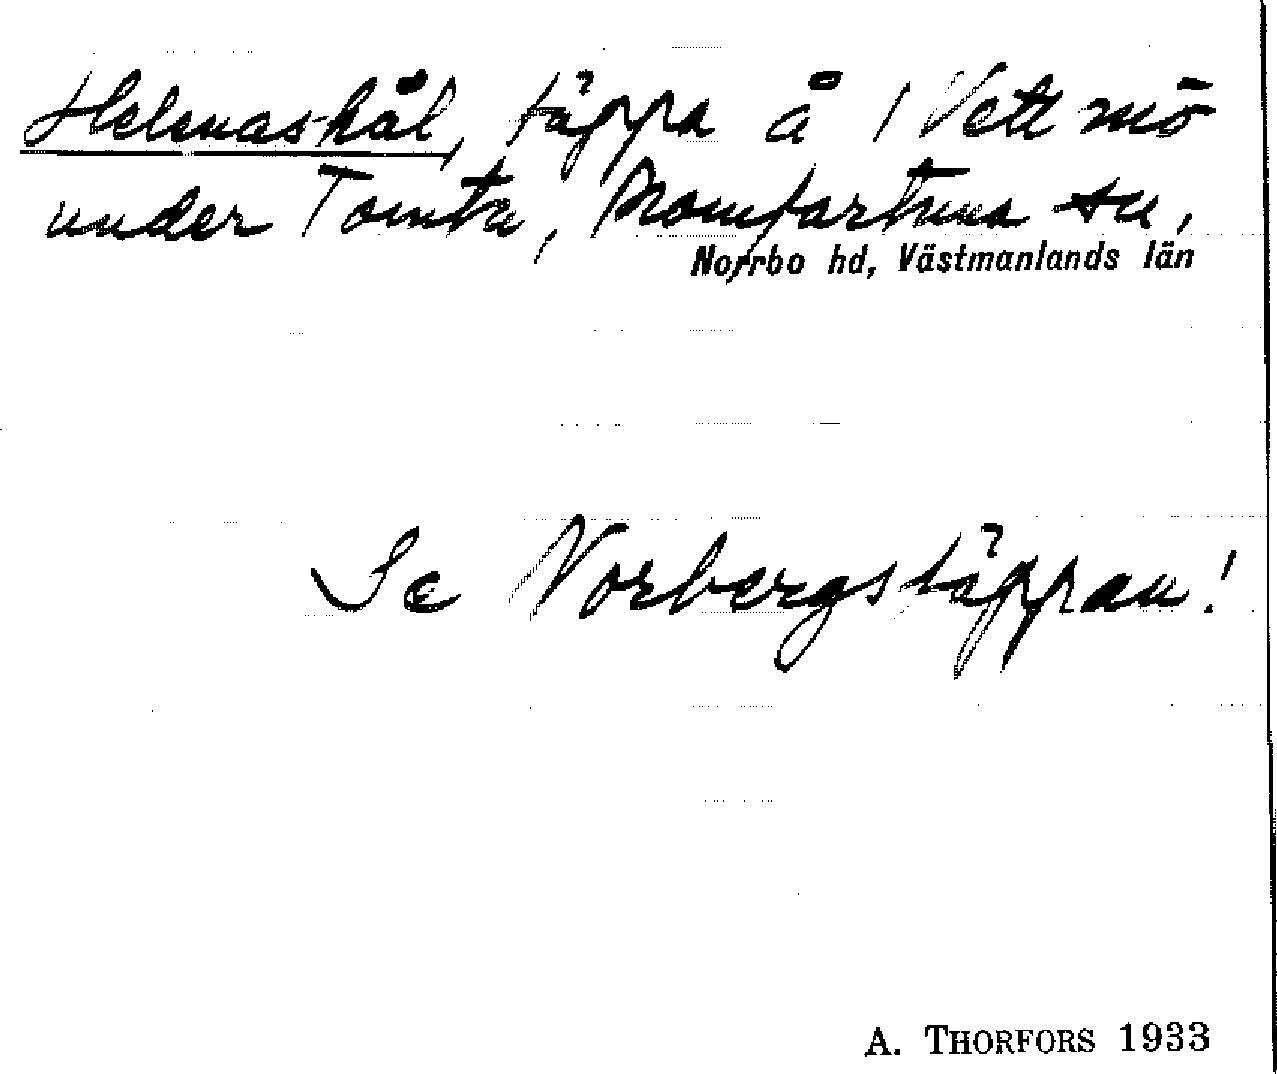 Helenashål, täppa å 1 Vettmö
under Tomta, Romfartuna sn,
Norrbo hd, Västmanlands län
Se Norbergstäppan!
A. THORFORS 1933